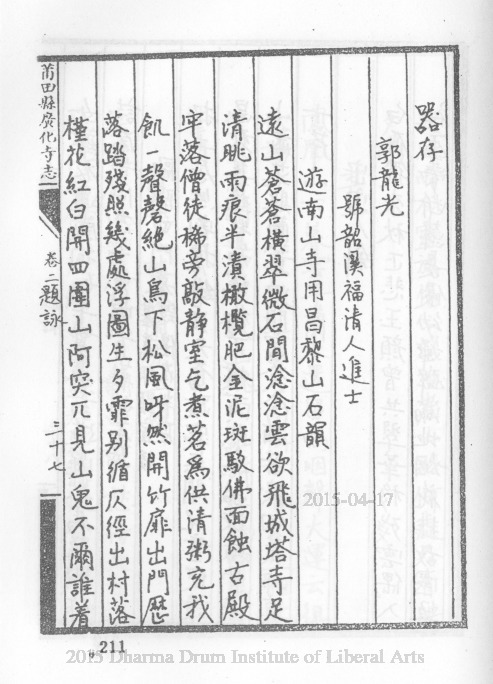 器存
郭龍光
號韶溪福清人進士
遊南山寺用昌黎山石韻
遠山蒼蒼橫翠微石間淰淰雲欲飛城塔寺足
清眺雨痕半漬橄欖肥金泥斑駁佛面蝕古殿
牢落僧徒稀旁敲靜室乞煮茗為供清粥充我
飢一聲磬絕山鳥下松風呀然開竹扉出門歷
落踏殘照幾處浮圖生夕霏別循仄徑出村落
槿花紅白開四圍山阿突兀見山鬼不爾誰着
莆田縣廣化寺志
卷二題詠
三十七
2015-04-17
211
2015 Dharma Drum Institute of Liberal Arts